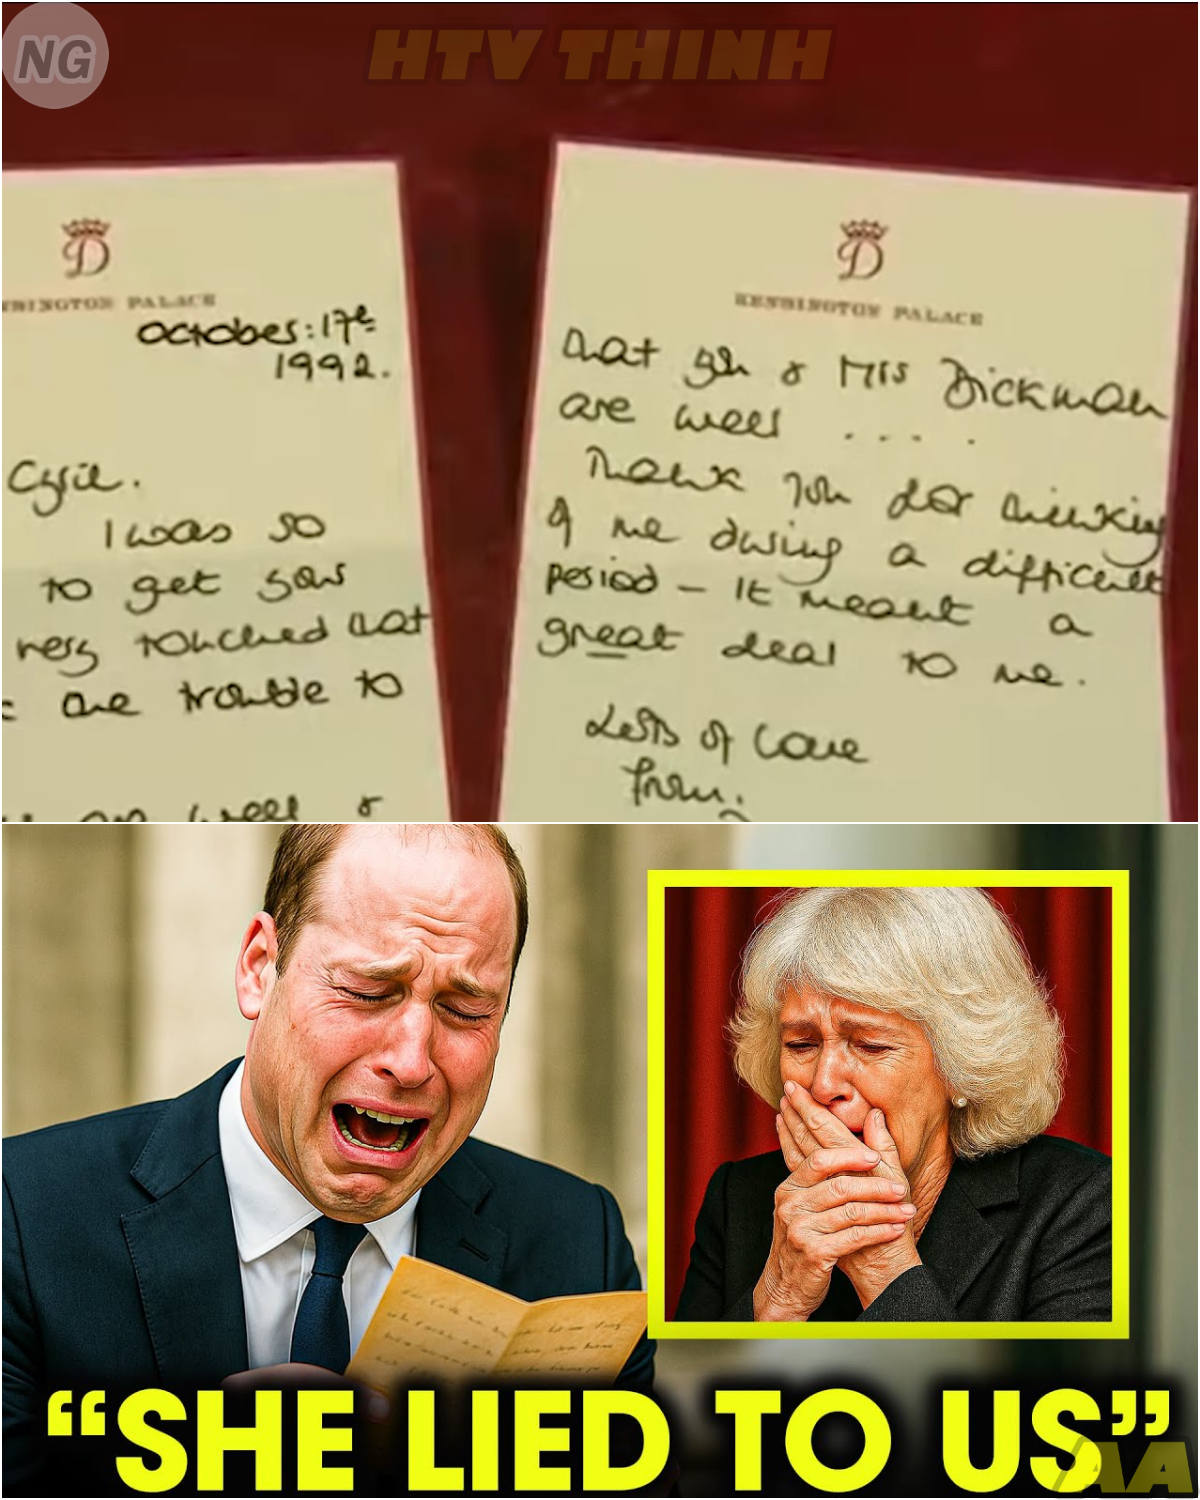 NG
HTV THINH
D
NSINGTON PALACE
October: 17th
1992.
Cyril.
I was so
to get your
very touched that
the trouble to
are well &
D
KENSINGTON PALACE
that you & Mrs Dickman
are well ....
Thank you for thinking
of me during a difficult
period - It meant a
great deal to me.
Lots of love
from.
“SHE LIED TO US”
AA